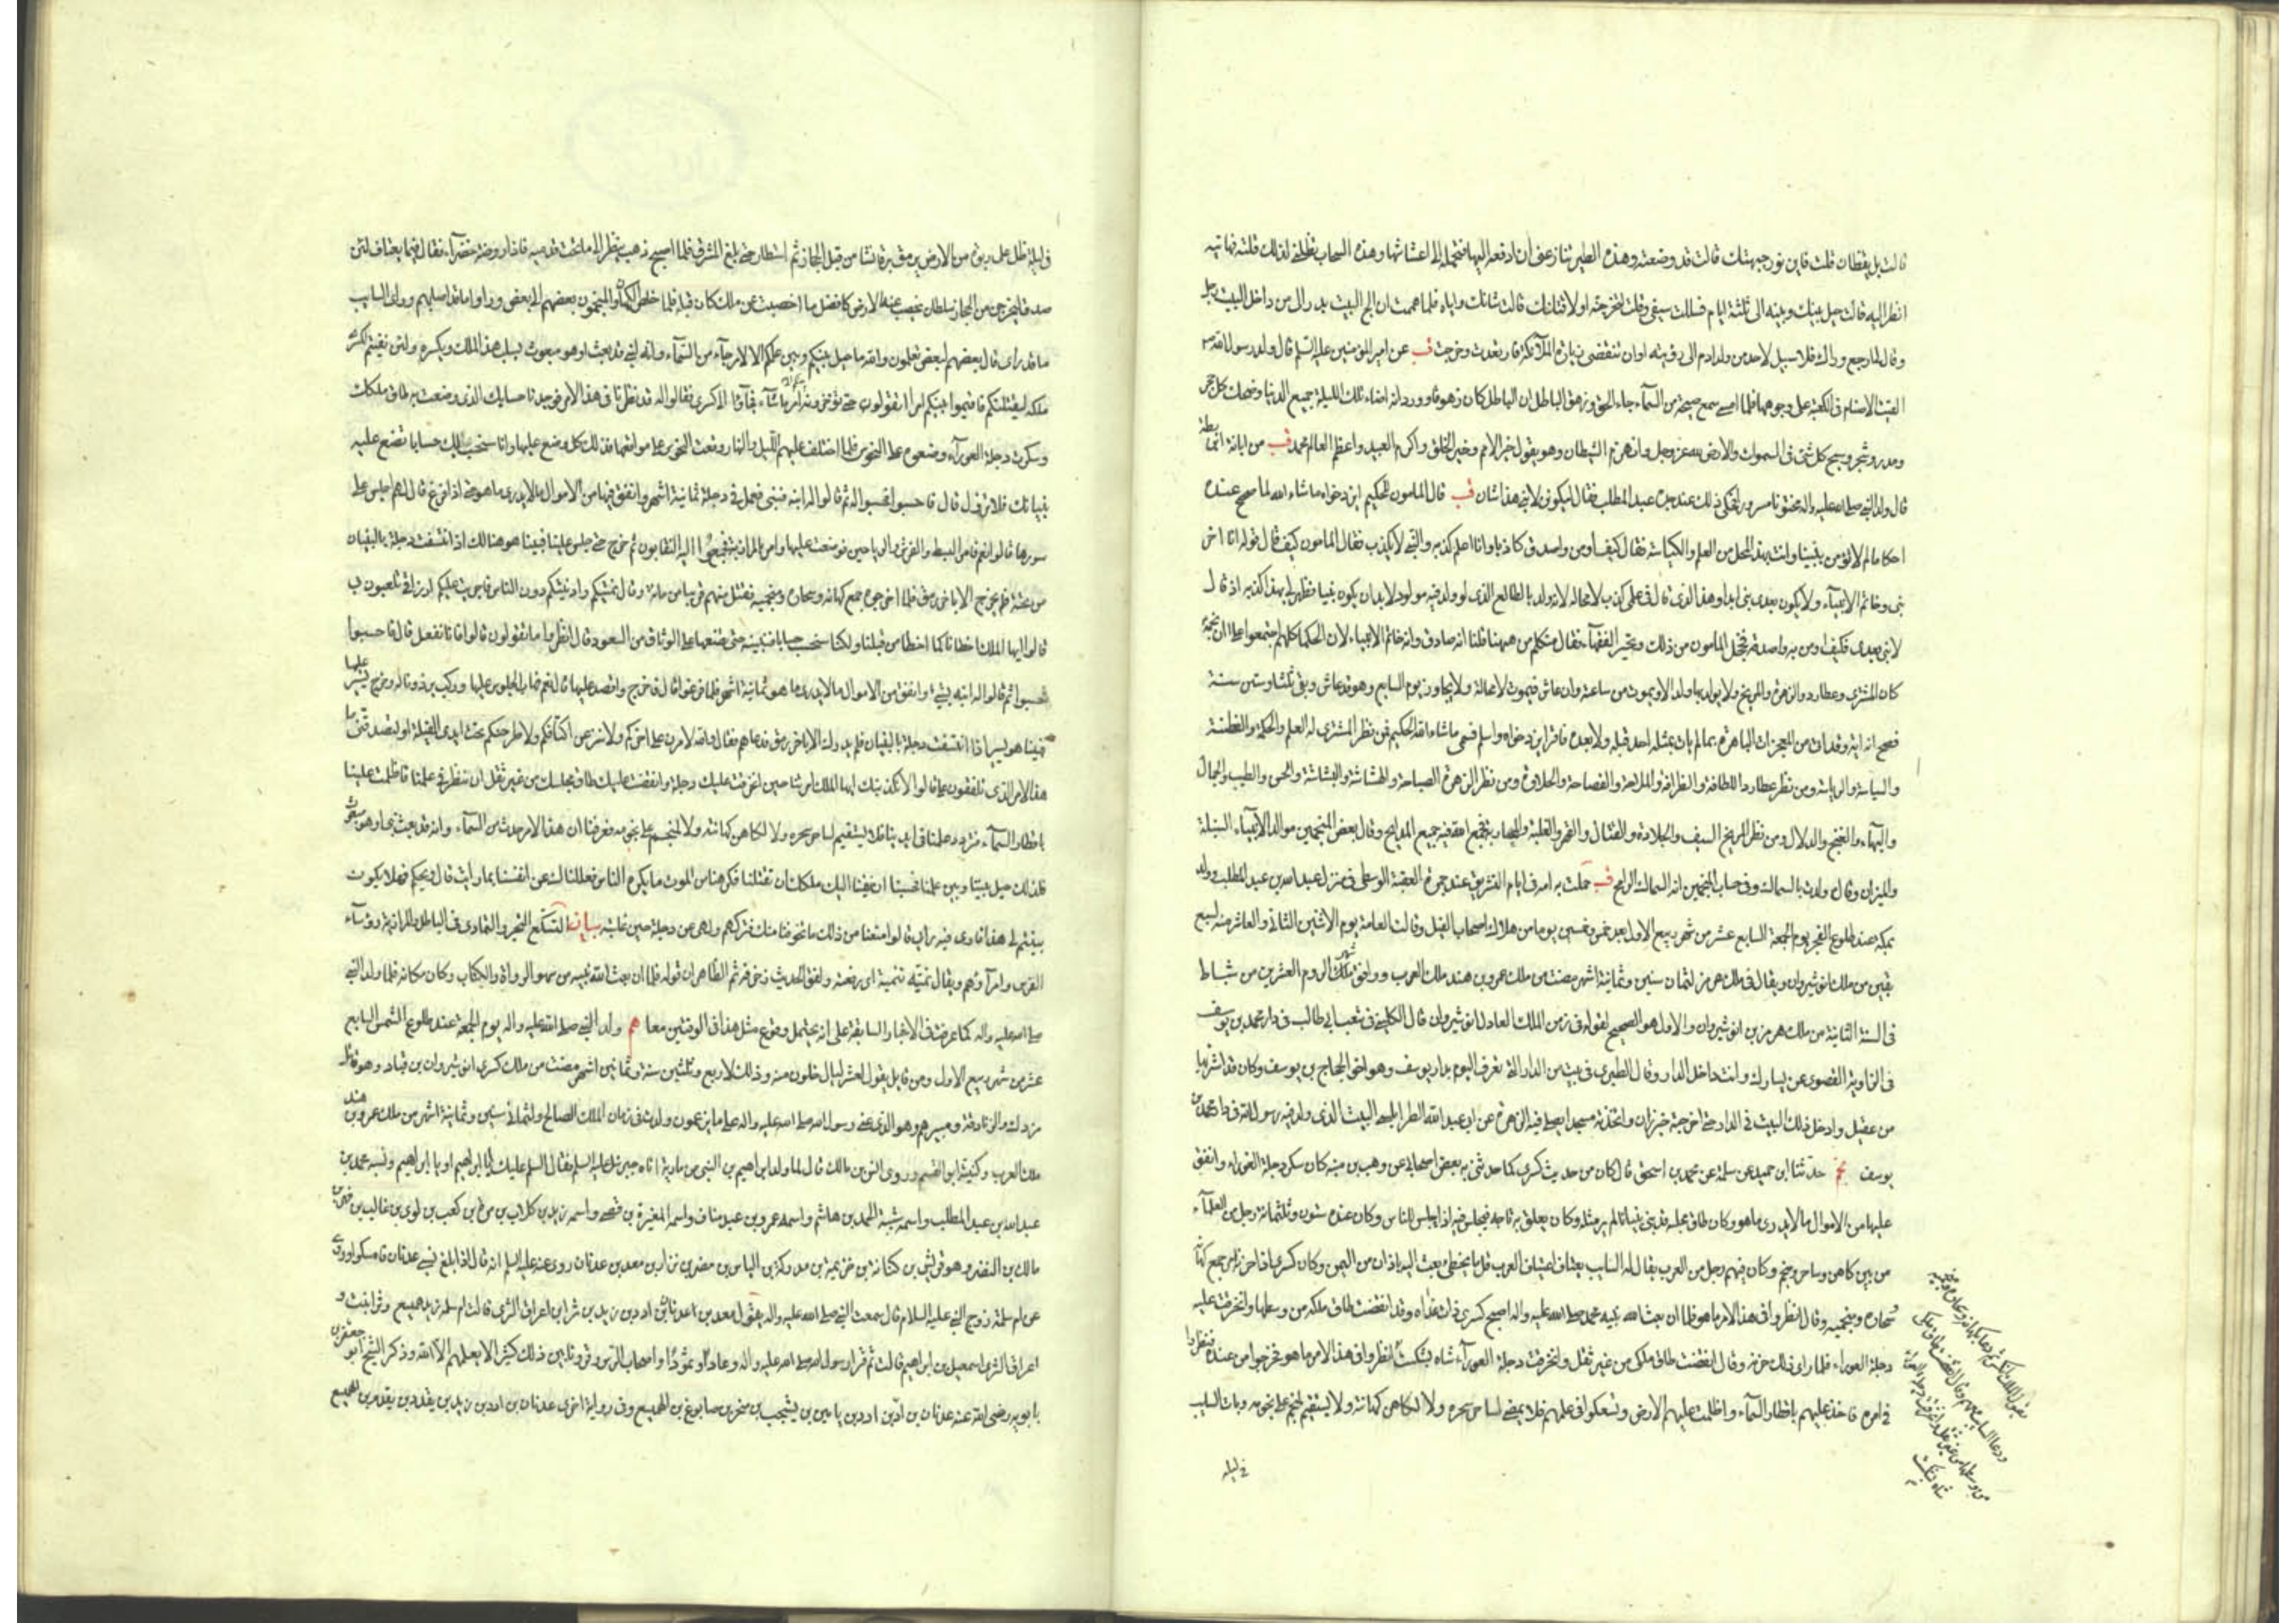 قالت بل يقظان قلت فاين نور جبهتك قالت قد وضعته وهذه الطير تنازعني ان ادفعه اليها فتحمله الى اعشاشها وهذه السحاب تظلني لذلك قلت فهاتيه
انظر اليه قالت حيل بينك وبينه الى ثلثة ايام فسللت سيفي وقلت لتخرجنه او لاقتلنك قالت شانك واياه فلما هممت ان الج البيت بدر الي من داخل البيت رجل
وقال لي ارجع وراك فلا سبيل لاحد من ولد ادم الى رؤيته او ان تنقضي زيارة الملآئكة فارتعدت وخرجت قب عن امير المؤمنين عليه السلم قال ولد رسول الله ص
القيت الاصنام في الكعبة على وجوهها فلما امسى سمع صيحة من السمآء جاء الحق وزهق الباطل ان الباطل كان زهوقا وورد انه اضاء تلك الليلة جميع الدنيا وضحك كل حجر
ومدر وشجر وسبح كل شئ في السموات والارض لله عز وجل وانهزم الشيطان وهو يقول خير الامم وخير الخلق واكرم العبيد واعظم العالم محمد قب من ابانة ابن بطة
قال ولد النبي صلى الله عليه واله مختونا مسرورا فحكي ذلك عند جده عبد المطلب فقال ليكونن لابني هذا شان قب قال المامون للحكيم ابن دخواه ماشاء الله لما صح عنده
احكامه لم لا تؤمن بنبينا وانت بهذا المحل من العلم والكياسة فقال كيف اومن واصدق كاذبا وانا اعلم كذبه والنبي لا يكذب فقال المامون كيف قال قوله انا اخر
نبي وخاتم الانبيآء ولا يكون بعدي نبي ابدا وهذا الذي قال في علمي كذب لا محالة لانه ولد بالطالع الذي لو ولد فيه مولود لابد ان يكون نبيا فظهر لي بهذا كذبه اذ قال
لا نبي بعدي فكيف اومن به واصدقه فخجل المامون من ذلك وتحير الفقهآء فقال متكلم من ههنا قلنا انه صادق وانه خاتم الانبياء لان الحكما كلهم اجتمعوا على ان نجمه
كان المشتري وعطارد والزهرة والمريخ ولا يولد بها ولد الا ويموت من ساعته وان عاش فيموت لا محالة ولا يجاوز يوم السابع وهو قد عاش وبقي ثلثا وستين سنة
فصح انه اية وقد اتى من المعجزات الباهرة بما لم يات بمثله احد قبله ولا بعده فاقر ابن دخواه واسلم فسمي ماشاء الله الحكيم فمن نظر المشتري له العلم والحكمة والفطنة
والسياسة والرياسة ومن نظر عطارد اللطافة والظرافة والملاحة والفصاحة والحلاوة ومن نظر الزهرة الصباحة والهشاشة والبشاشة والحسن والطيب والجمال
والبهآء والغنج والدلال ومن نظر المريخ السيف والجلادة والقتال والقهر والغلبة والمحاربة فجمع الله فيه جميع المدايح وقال بعض المنجمين مواليد الانبيآء السنبلة
والميزان وقال ولدت بالسماك وفي حساب المنجمين انه السماك الرامح قب حملت به امه في ايام التشريق عند جمرة العقبة الوسطى في منزل عبد الله بن عبد المطلب وولد
بمكة عند طلوع الفجر يوم الجمعة السابع عشر من شهر ربيع الاول بعد خمس وخمسين يوما من هلاك اصحاب الفيل وقالت العامة يوم الاثنين الثاني والعاشر منه لسبع
بقين من ملك انوشيروان ويقال في ملك هرمز لثمان سنين وثمانية اشهر مضت من ملك عمرو بن هند ملك العرب ووافق شهر الروم العشرين من شباط
في السنة الثانية من ملك هرمز بن انوشيروان والاول هو الصحيح لقوله في زمن الملك العادل انوشيروان قال الكليني في شعب ابي طالب في دار محمد بن يوسف
في الزاوية القصوى عن يسارك وانت داخل الدار وقال الطبري في بيت من الدار التي تعرف اليوم بدار يوسف وهو اخو الحجاج بن يوسف وكان قد اشتراها
من عقيل وادخل ذلك البيت في الدار حتى اخرجته خيزران واتخذته مسجدا يصلى فيه الزهرة عن ابي عبد الله الطرابلسي البيت الذي ولد فيه رسول الله في دار محمد بن
يوسف نجم حدثنا ابن حميد عن سلمة عن محمد بن اسحق قال كان من حديث كسرى كما حدثني به بعض اصحابي عن وهب بن منبه كان سكر دجلة العوراء وانفق
عليها من الاموال ما لا يدرى ما هو وكان طاق مجلسه قد بني بنيانا لم ير مثله وكان يعلق به تاجه فيجلس فيه اذا جلس للناس وكان عنده ستون وثلثمائة رجل من العلمآء
من بين كاهن وساحر ومنجم وكان فيهم رجل من العرب يقال له السايب يعتاف اعتياف العرب قل ما يخطئ بعث اليه باذان من اليمن وكان كسرى اذا حزنه امر جمع كهانه
وسحاره ومنجميه وقال انظروا في هذا الامر ما هو فلما ان بعث الله نبيه محمد صلى الله عليه واله اصبح كسرى ذات غداة وقد انقضت طاق ملكه من وسطها وانخرقت عليه
دجلة العوراء فلما راى ذلك حزنه وقال انقضت طاق ملكي من غير ثقل وانخرقت دجلة العورآء شاه بشكست انظروا في هذا الامر ما هو فخرجوا من عنده فنظروا
في امره فاخذ عليهم باقطار السمآء واظلمت عليهم الارض وتسكعوا في علمهم فلا يمضي لساحر سحره ولا لكاهن كهانته ولا يستقيم لمنجم علم نجومه وبات السايب
في ليلة
في ليلة ظل على ربوة من الارض يرمق برقا نشا من قبل الحجاز ثم استطار حتى بلغ المشرق فلما اصبح ذهب ينظر الى ما تحت قدميه فاذا روضة خضرآء فقال فيما يعتاف لئن
صدق ليخرجن من الحجاز سلطان يخصب عنه الارض كافضل ما اخصبت عن ملك كان قبله فلما خلص الكهان والمنجمون بعضهم الى بعض وراوا ما قد اصابهم وراى السايب
ما قد راى قال بعضهم لبعض تعلمون والله ما حيل بينكم وبين علمكم الا لامر جآء من السمآء وانه لنبي قد بعث او هو مبعوث يسلب هذا الملك ويكسره ولئن نعيتم لكسرى
ملكه ليقتلنكم فاقيموا بينكم امرا تقولونه حتى تؤخرونه الى امر ما شآء فجآؤا الى كسرى فقالوا له قد نظرنا في هذا الامر فوجدنا حسابك الذي وضعت به طاق ملكك
وسكرت دجلة العورآء وضعوه على النحوس فلما اختلف عليهم الليل والنهار وقعت النحوس على مواقعها فدك كل وضع عليها وانا سنحسب لك حسابا تضع عليه
بنيانك فلا يزول قال فاحسبوا فحسبوا له ثم قالوا له ابنه فبنى فعمل في دجلة ثمانية اشهر وانفق فيها من الاموال ما لا يدرى ما هو حتى اذا فرغ قال لهم اجلس على
سورها قالوا نعم فامر بالبسط والفرش والرياحين فوضعت عليها وامر بالمرازبة فجمعوا اليه النقابون ثم خرج حتى جلس عليها فبينا هو هنالك اذ انتسفت دجلة بالبنيان
من تحته فلم يخرج الا باخر رمق فلما اخرجوه جمع كهانه وسحاره ومنجميه فقتل منهم قريبا من مائة وقال سمنتكم وادنيتكم دون الناس فاجريت عليكم ارزاقي تلعبون بي
قالوا ايها الملك اخطانا كما اخطا من قبلنا ولكنا سنحسب حسابا فتبينه حتى تضعها على الوثاق من السعود قال انظروا ما تقولون قالوا فانا نفعل قال فاحسبوا
فحسبوا ثم قالوا له ابنه فبنى وانفق من الاموال ما لا يدرى ما هو ثمانية اشهر فلما فرغوا قال افاخرج واقعد عليها قال نعم فهاب الجلوس عليها وركب برذونا له وخرج يسير عليها
فبينا هو يسير اذا انتسفت دجلة بالبنيان فلم يدرك الا باخر رمق فدعاهم فقال والله لامرن على اخركم ولانزعن اكتافكم ولاطرحنكم تحت ايدي الفيلة او لتصدقنني ما
هذا الامر الذي تلفقون علي قالوا لا نكذبك ايها الملك امرتنا حين انخرقت عليك دجلة وانقضت عليك طاق مجلسك من غير ثقل ان ننظر في علمنا فاظلمت علينا
باقطار السمآء فتردد علمنا في ايدينا فلا يستقيم لساحر سحره ولا لكاهن كهانته ولا لمنجم علم نجومه فعرفنا ان هذا الامر حدث من السمآء وانه قد بعث نبي او هو مبعوث
فلذلك حيل بيننا وبين علمنا فخشينا ان نعينا اليك ملكك ان تقتلنا فكرهنا من الموت ما يكره الناس فعللناك عن انفسنا بما رايت قال ويحكم فهلا تكون
بينتم لي هذا فارى فيه رايي قالوا منعنا من ذلك ما تخوفنا منك فتركهم ولهى عن دجلة حين غلبته بيان التسكع التحير والتمادي في الباطل والمرازبة رؤسآء
الفرس وامرآؤهم ويقال نميته تنمية اي رفعته ولفق الحديث زخرفه ثم الظاهر ان قوله فلما ان بعث الله نبيه من سهو الرواة والكتاب وكان مكانه فلما ولد النبي
صلى الله عليه واله كما عرفت في الاخبار السابقة على انه يحتمل وقوع مثل هذا في الوقتين معا عم ولد النبي صلى الله عليه واله يوم الجمعة عند طلوع الشمس السابع
عشر من شهر ربيع الاول ومن قايل يقول لعشر ليال خلون منه وذلك لاربع وثلثين سنة وثمانية اشهر مضت من ملك كسرى انوشيروان بن قباد وهو قاتل
مزدك والزنادقة ومبيرهم وهو الذي عنى رسول الله صلى الله عليه واله على ما يزعمون ولدت في زمان الملك الصالح ولثمان سنين وثمانية اشهر من ملك عمرو بن هند
ملك العرب وكنيته ابو القسم وروى انس بن مالك قال لما ولد ابراهيم بن النبي من مارية اتاه جبرئيل عليه السلم فقال السلم عليك يا ابا ابراهيم او يا ابراهيم ونسبه محمد بن
عبد الله بن عبد المطلب واسمه شيبة الحمد بن هاشم واسمه عمرو بن عبد مناف واسمه المغيرة بن قصي واسمه زيد بن كلاب بن مرة بن كعب بن لوي بن غالب بن فهر بن
مالك بن النضر وهو قريش بن كنانة بن خزيمة بن مدركة بن الياس بن مضر بن نزار بن معد بن عدنان روي عنه عليه السلم انه قال اذا بلغ نسبي عدنان فامسكوا وروي
عن ام سلمة زوج النبي عليه السلام قال سمعت النبي صلى الله عليه واله يقول معد بن عدنان بن ادد بن زيد بن ثرا بن اعراق الثرى قالت ام سلمة زيد هميسع وثرا نبت و
اعراق الثرى اسمعيل بن ابراهيم قالت ثم قرا رسول الله صلى الله عليه واله وعادا وثمودا واصحاب الرس وقرونا بين ذلك كثيرا لا يعلمهم الا الله وذكر الشيخ ابو جعفر بن
بابويه رضي الله عنه عدنان بن اد بن ادد بن يامين بن يشجب بن منحر بن صابوغ بن الهميسع وفي رواية اخرى عدنان بن ادد بن زيد بن يقدد بن يقدم بن الهميسع